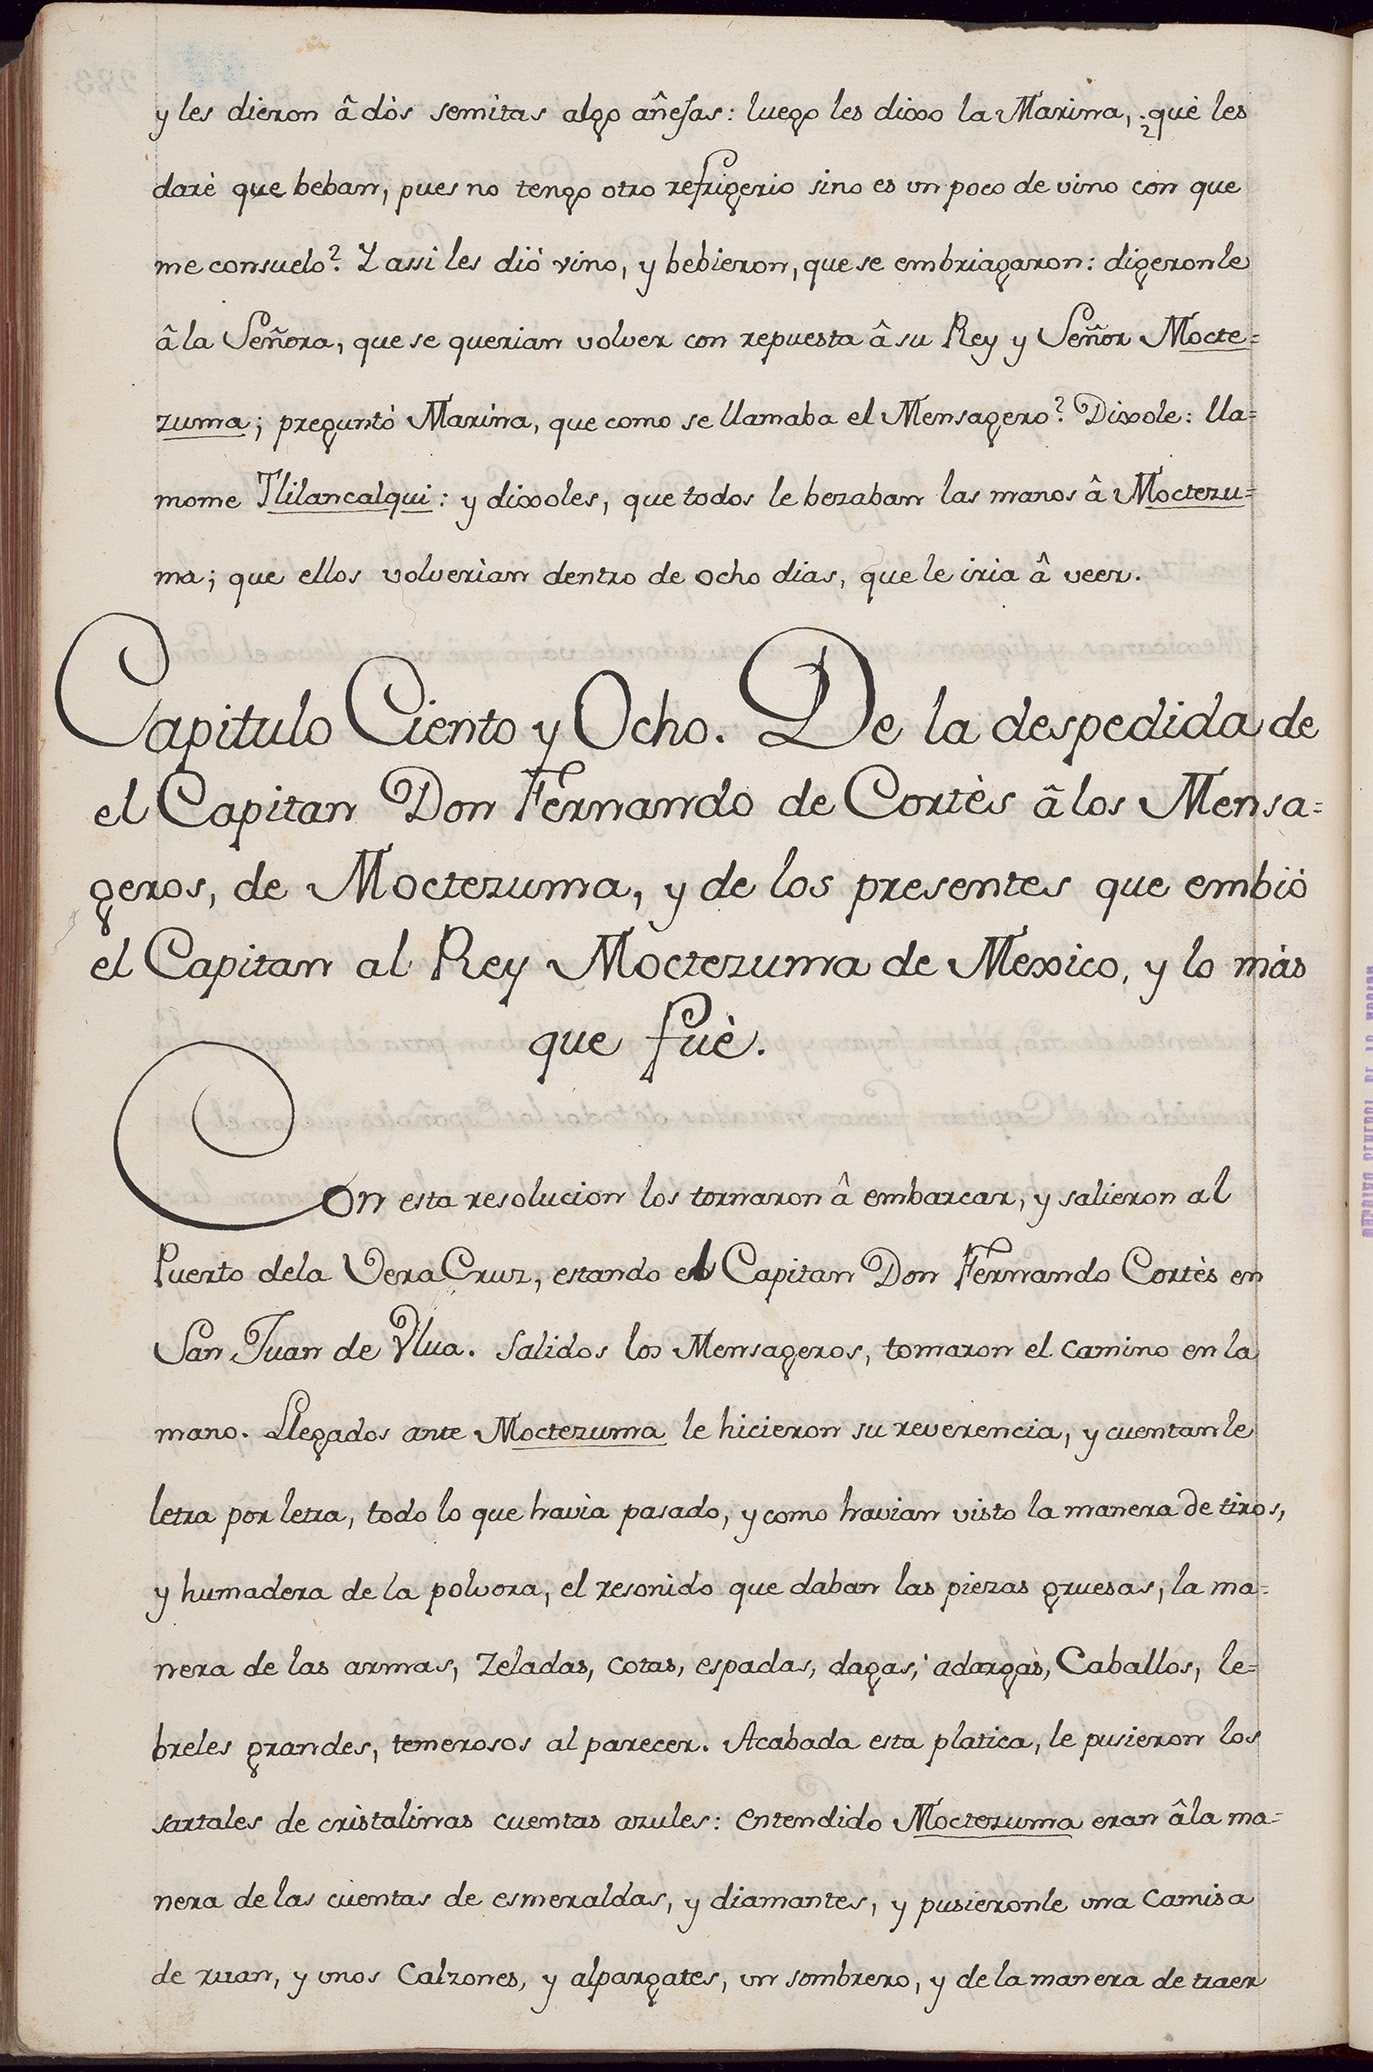 y les dieron â dòs semitas algo añejas: luego les dixo la Marina, ¿què les
darè que beban, pues no tengo otro refrigerio sino es un poco de vino con que
me consuelo? Y assi les diò vino, y bebieron, que se embriagaron: digeronle
â la Señora, que se querian volver con repuesta â su Rey y Señor Mocte=
zuma; preguntò Marina, que como se llamaba el Mensagero? Dixole: lla=
mome Tlilancalqui: y dixoles, que todos le bezaban las manos â Moctezu=
ma; que ellos volverian dentro de ocho dias, que le iria â veer.
Capitulo Ciento y Ocho. De la despedida de
el Capitan Don Fernando de Cortès â los Mensa=
geros, de Moctezuma, y de los presentes que embiò
el Capitan al Rey Moctezuma de Mexico, y lo màs
que fuè.
Con esta resolucion los tornaron â embarcar, y salieron al
Puerto dela Vera Cruz, estando el Capitan Don Fernando Cortès en
San Juan de Vlua. Salidos los Mensageros, tomaron el camino en la
mano. Llegados ante Moctezuma le hicieron su reverencia, y cuentanle
letra por letra, todo lo que havia pasado, y como havian visto la manera de tiros,
y humadera de la polvora, el resonido que daban las piezas gruesas, la ma=
nera de las armas, Zeladas, cotas, espadas, dagas, adargas, Caballos, le=
breles grandes, temerosos al parecer. Acabada esta platica, le pusieron los
sartales de cristalinas cuentas azules: entendido Moctezuma eran â la ma=
nera de las cuentas de esmeraldas, y diamantes, y pusieronle una Camisa
de ruan, y unos Calzones, y alpargates, un sombrero, y de la manera de traer